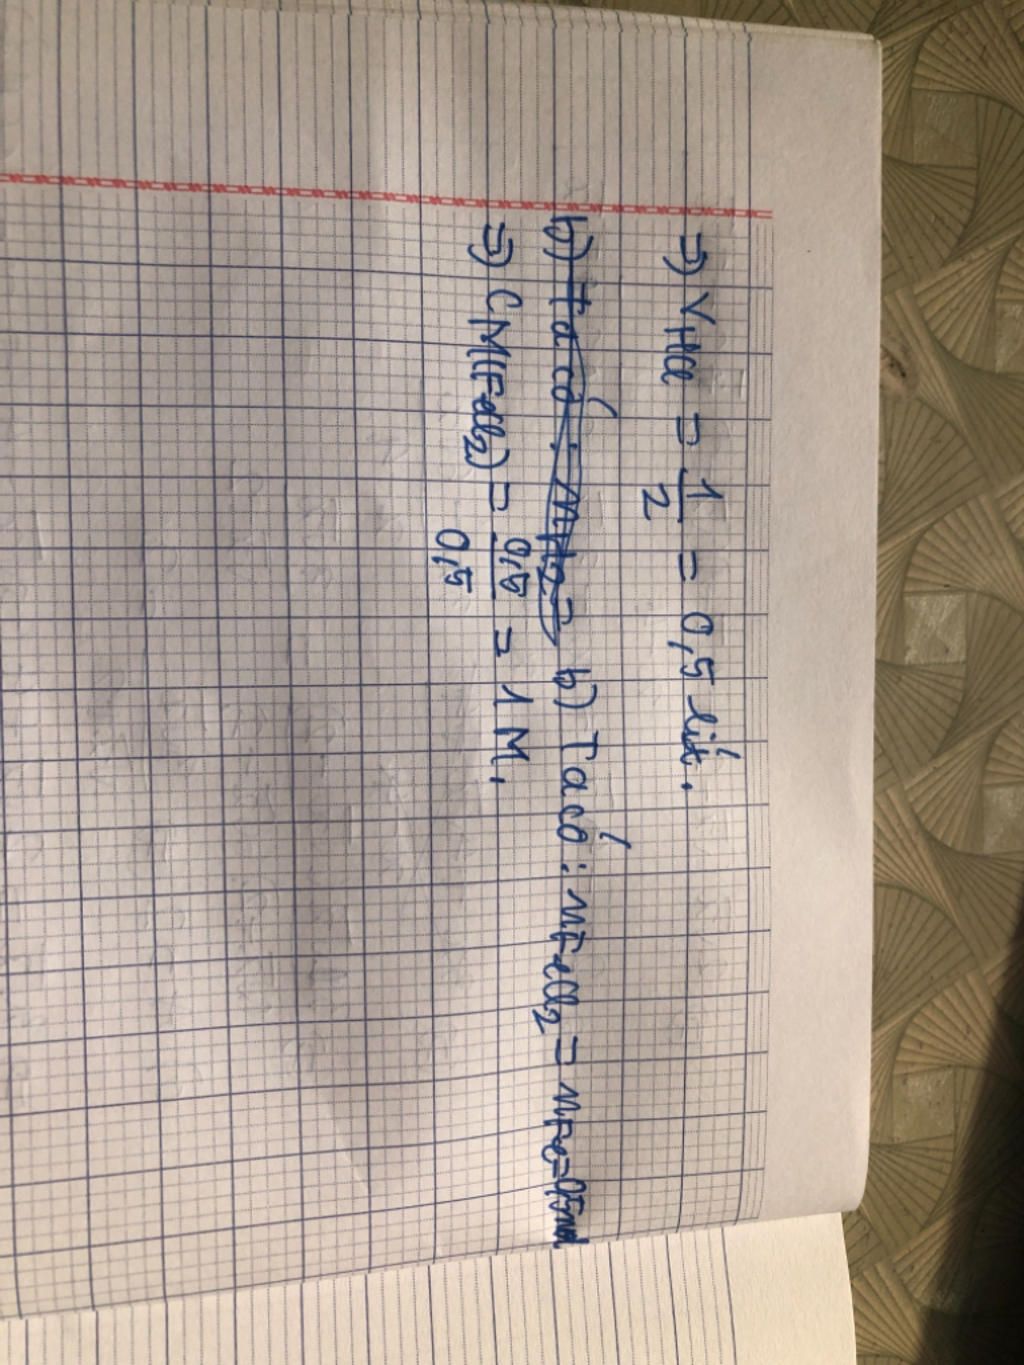 => VHCl = 1/2 = 0,5 lít.
b) Ta có : nH2 = b) Ta có : nFeCl2 = nFe = 0,5 mol
=> CM(FeCl2) = 0,5/0,5 = 1 M.